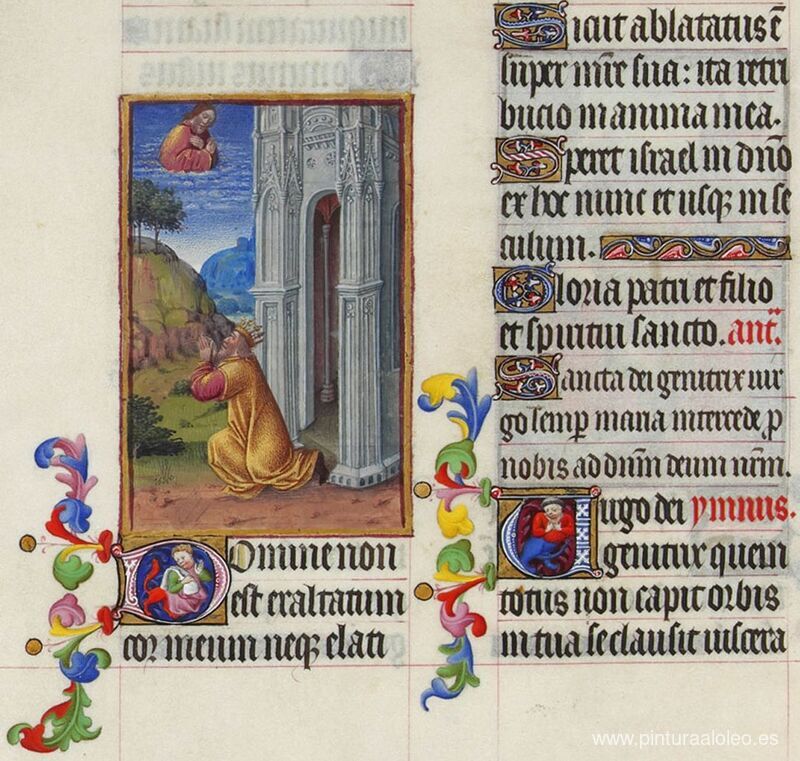 Domine non
est exaltatum
cor meum neqȝ elati
Sicut ablatatus ē
super mr̄e sua: ita retri
bucio in anima mea.
Speret israel in dn̄o
ex hoc nunc et usqȝ in se
culum.
Gloria patri et filio
et spiritui sancto. ant̄.
Sancta dei genitrix uir
go semꝑ maria intercede ꝓ
nobis ad dn̄m deum nr̄m.
Uirgo dei ymnus.
genitrix quem
totus non capit orbis
in tua se clausit uiscera
www.pinturaaloleo.es